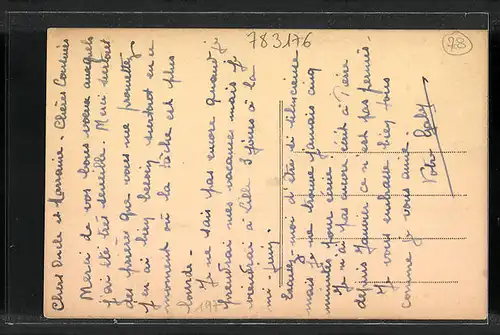 783176
78
Chers Oncle et Marraine. Chères Cousines
Merci de vos bons vœux auxquels
j'ai été très sensible. Merci surtout
des prières que vous me promettez
j'en ai bien besoin surtout en ce
moment où la tâche est plus
lourde.
Je ne sais pas encore quand je
prendrai mes vacances mais je
viendrai à Lille 3 jours à la
mi juin.
Excusez-moi d'être si silencieuse
mais je ne trouve jamais cinq
minutes pour écrire
Je n'ai pas encore écrit à
depuis Janvier ce n'est pas permis.
Je vous embrasse bien tous
comme je vous aime.
Votre